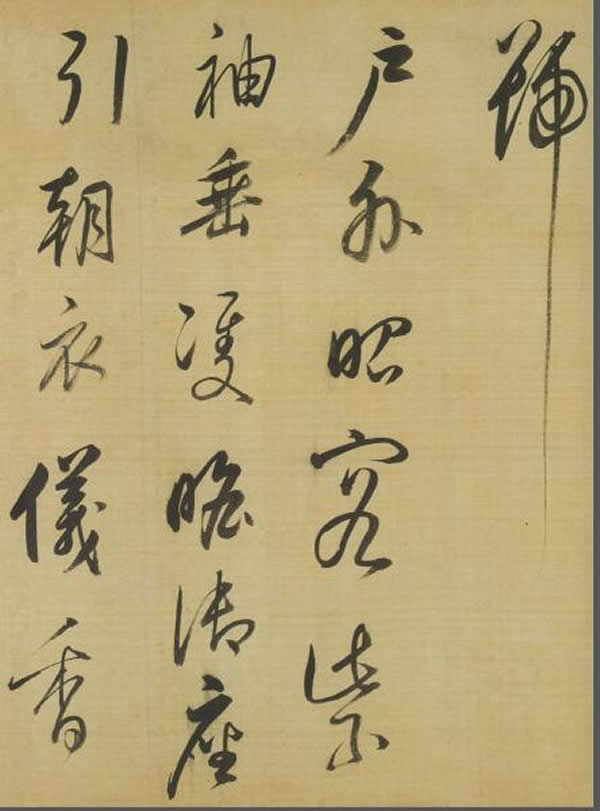 號
戶外昭容紫
袖垂雙瞻御座
引朝衣儀香